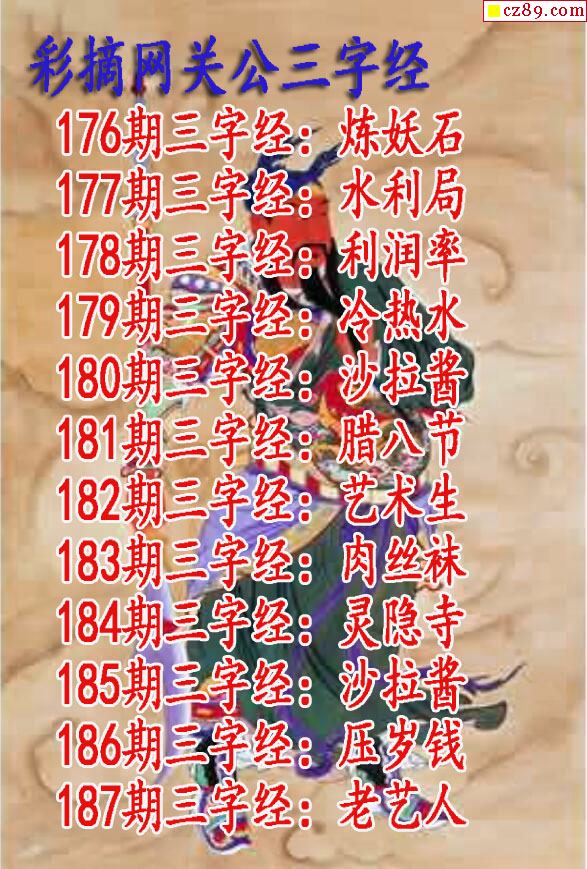 cz89.com
彩摘网关公三字经
176期三字经：炼妖石
177期三字经：水利局
178期三字经：利润率
179期三字经：冷热水
180期三字经：沙拉酱
181期三字经：腊八节
182期三字经：艺术生
183期三字经：肉丝袜
184期三字经：灵隐寺
185期三字经：沙拉酱
186期三字经：压岁钱
187期三字经：老艺人